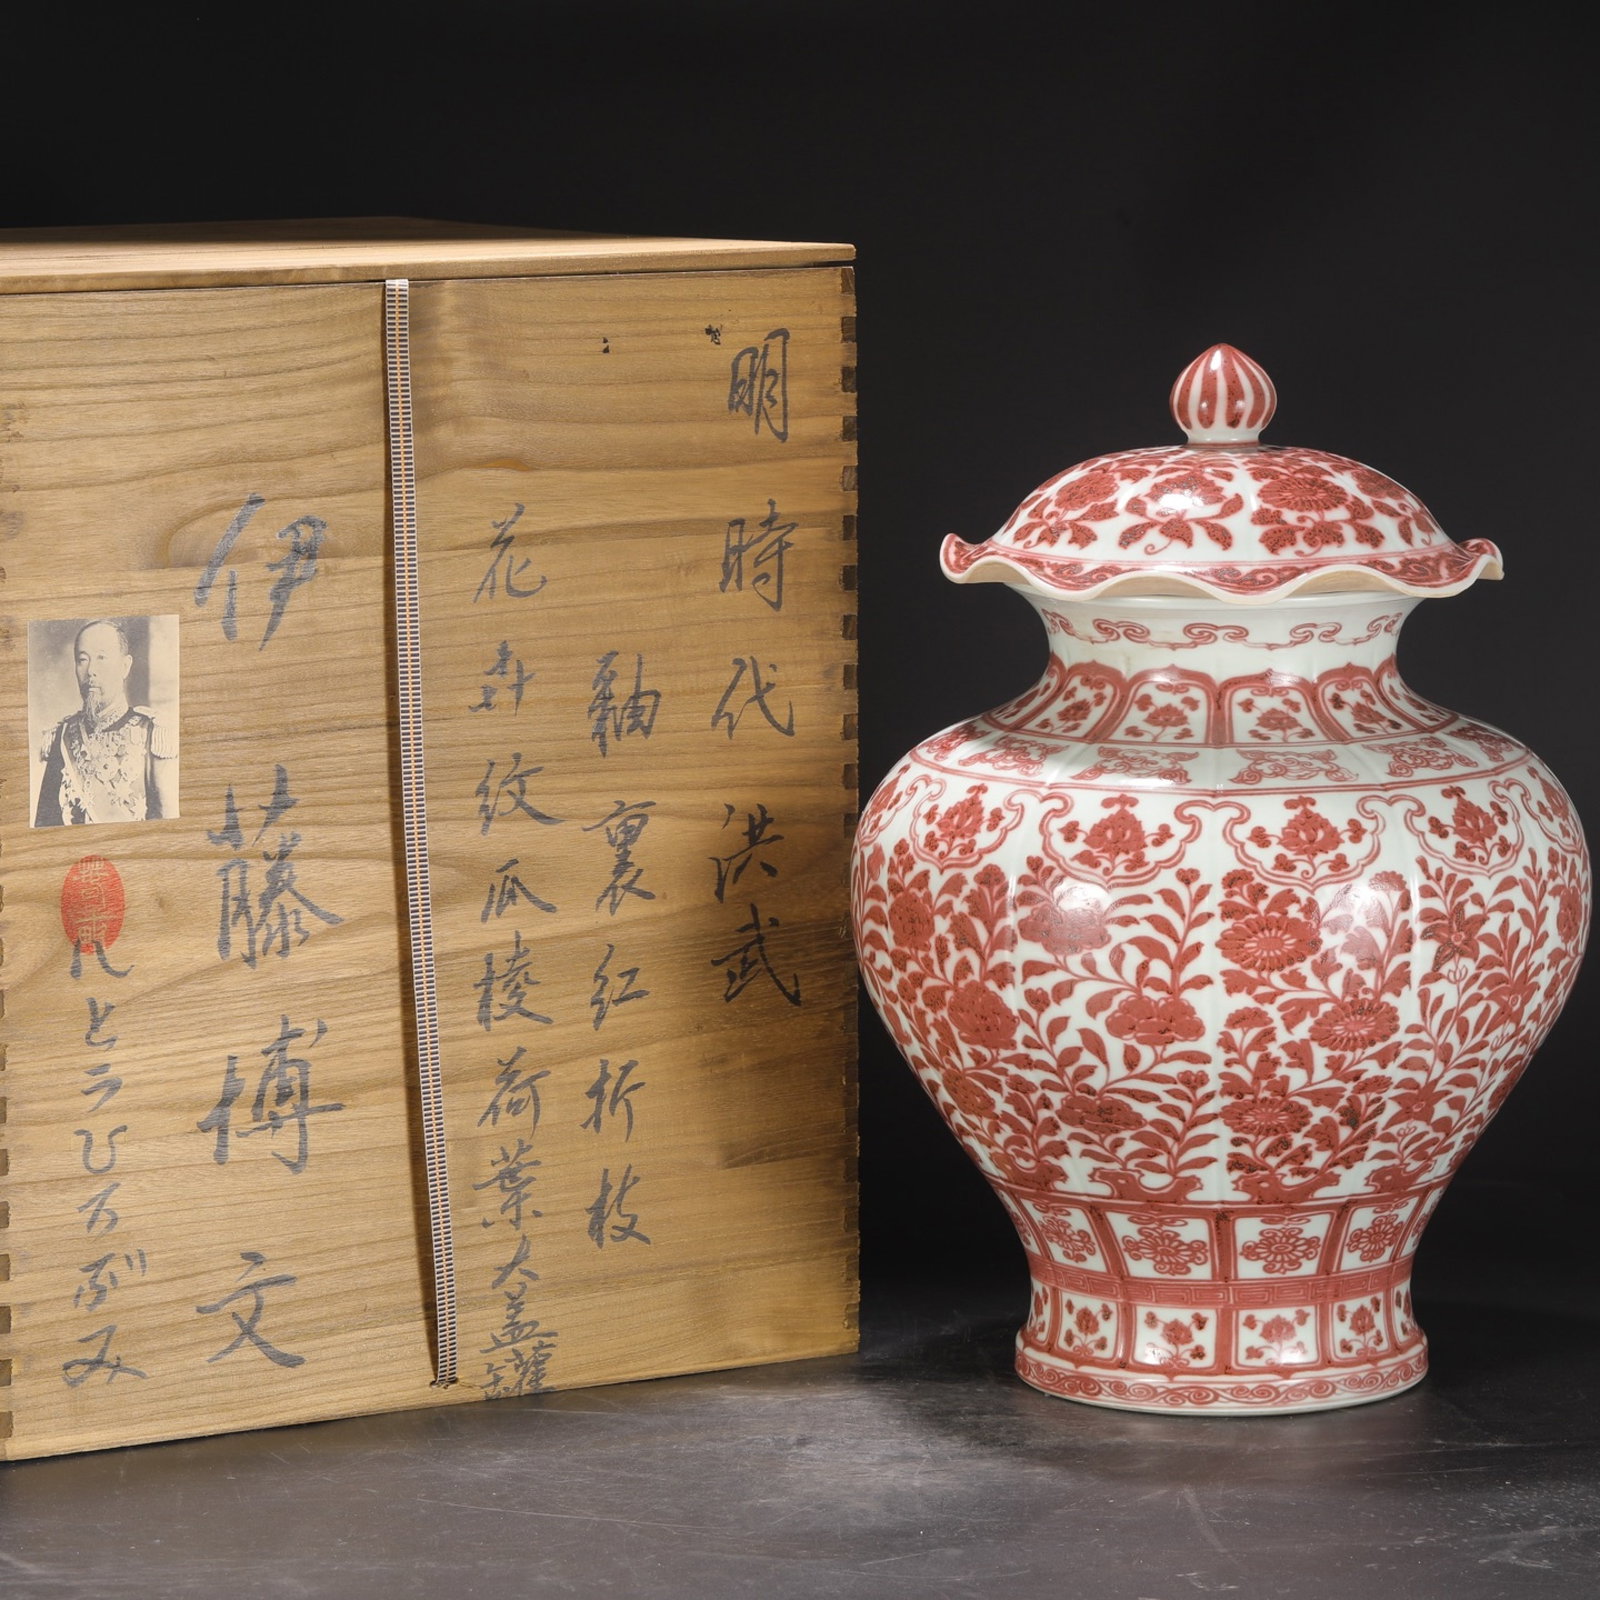 明時代洪武
釉裏紅折枝
花卉紋瓜棱荷葉大蓋罐
伊藤博文
いとうひろぶみ